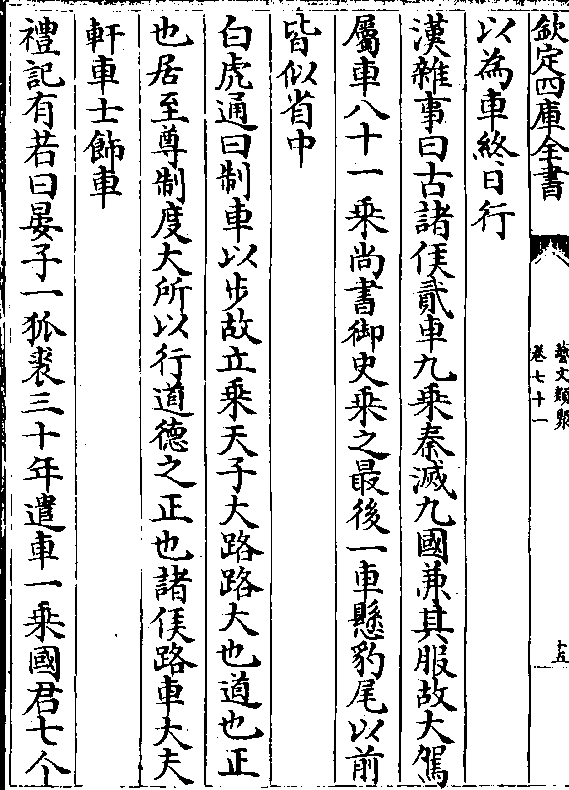 欽定四庫全書
藝文類聚
卷七十一
十五
以為車終日行
漢雜事曰古諸侯貳車九乘秦滅九國兼其服故大駕
屬車八十一乘尚書御史乘之最後一車懸豹尾以前
皆似省中
白虎通曰制車以步故立乘天子大路路大也道也正
也居至尊制度大所以行道德之正也諸侯路車大夫
軒車士飾車
禮記有若曰晏子一狐裘三十年遣車一乘國君七个